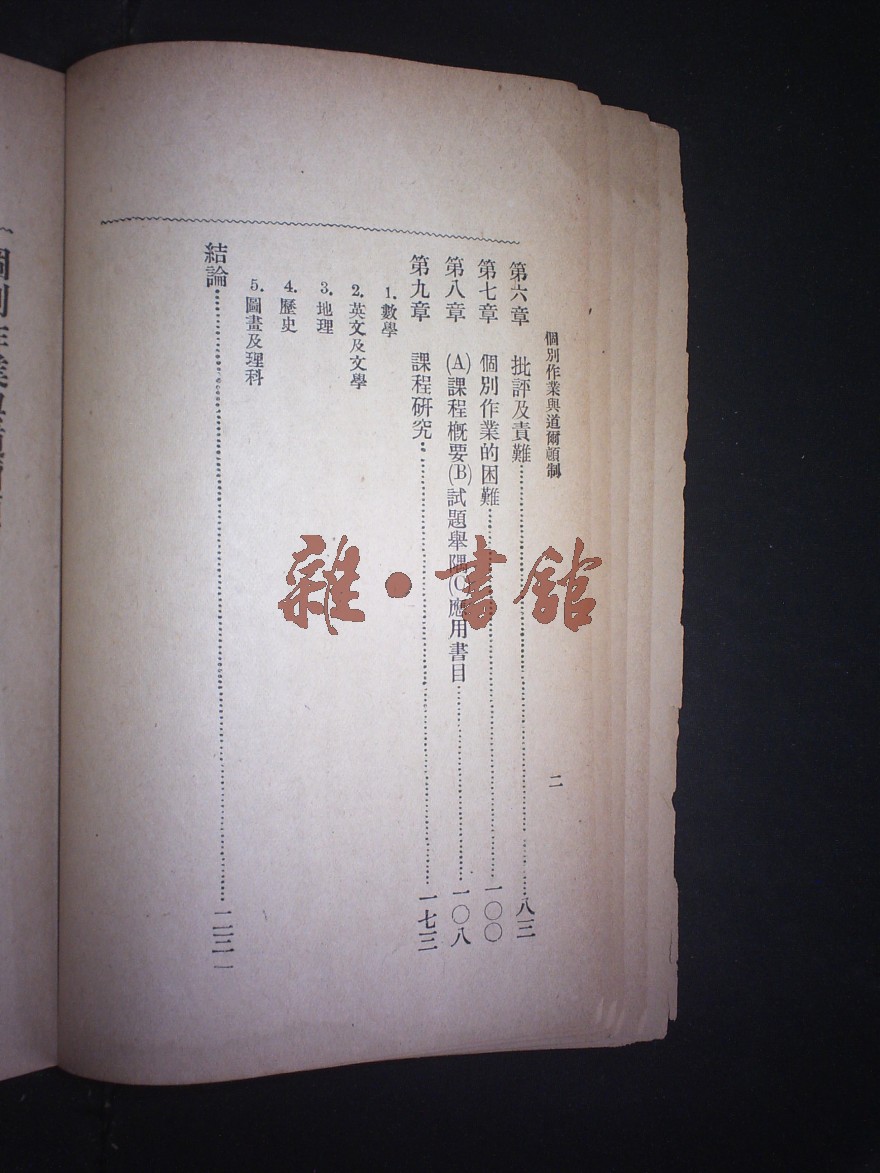 個別作業與道爾頓制
二
第六章 批評及責難……八三
第七章 個別作業的困難……一〇〇
第八章 (A)課程概要(B)試題舉隅(C)應用書目……一〇八
第九章 課程研究……一七三
1.數學
2.英文及文學
3.地理
4.歷史
5.圖畫及理科
結論……
雜·書館